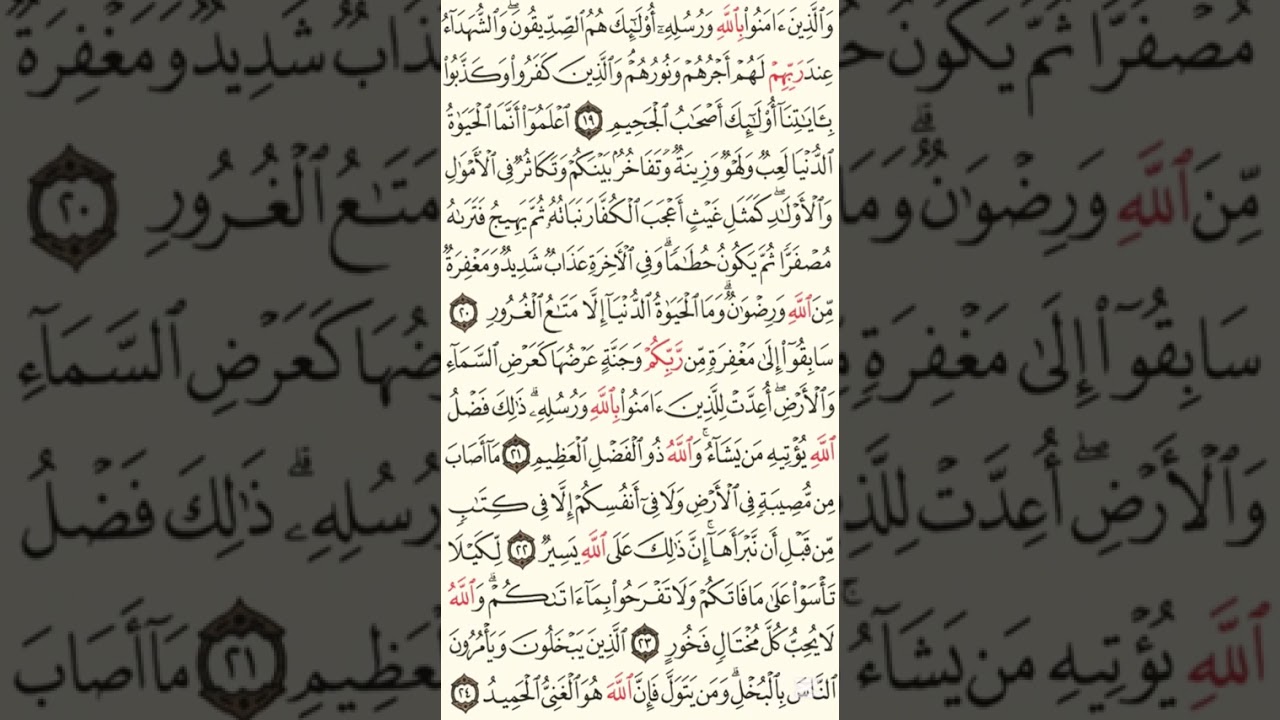 وَالَّذِينَ ءَامَنُوا۟ بِاللَّهِ وَرُسُلِهِۦٓ أُو۟لَـٰٓئِكَ هُمُ الصِّدِّيقُونَ ۖ وَالشُّهَدَآءُ
عِندَ رَبِّهِمْ لَهُمْ أَجْرُهُمْ وَنُورُهُمْ ۖ وَالَّذِينَ كَفَرُوا۟ وَكَذَّبُوا۟
بِـَٔايَـٰتِنَآ أُو۟لَـٰٓئِكَ أَصْحَـٰبُ الْجَحِيمِ ١٩ اعْلَمُوٓا۟ أَنَّمَا الْحَيَوٰةُ
الدُّنْيَا لَعِبٌ وَلَهْوٌ وَزِينَةٌ وَتَفَاخُرٌۢ بَيْنَكُمْ وَتَكَاثُرٌ فِى الْأَمْوَٰلِ
وَالْأَوْلَـٰدِ ۖ كَمَثَلِ غَيْثٍ أَعْجَبَ الْكُفَّارَ نَبَاتُهُۥ ثُمَّ يَهِيجُ فَتَرَىٰهُ
مُصْفَرًّا ثُمَّ يَكُونُ حُطَـٰمًا ۖ وَفِى الْـَٔاخِرَةِ عَذَابٌ شَدِيدٌ وَمَغْفِرَةٌ
مِّنَ اللَّهِ وَرِضْوَٰنٌ ۚ وَمَا الْحَيَوٰةُ الدُّنْيَآ إِلَّا مَتَـٰعُ الْغُرُورِ ٢٠
سَابِقُوٓا۟ إِلَىٰ مَغْفِرَةٍ مِّن رَّبِّكُمْ وَجَنَّةٍ عَرْضُهَا كَعَرْضِ السَّمَآءِ
وَالْأَرْضِ ۖ أُعِدَّتْ لِلَّذِينَ ءَامَنُوا۟ بِاللَّهِ وَرُسُلِهِۦ ۚ ذَٰلِكَ فَضْلُ
اللَّهِ يُؤْتِيهِ مَن يَشَآءُ ۚ وَاللَّهُ ذُو الْفَضْلِ الْعَظِيمِ ٢١ مَآ أَصَابَ
مِن مُّصِيبَةٍ فِى الْأَرْضِ وَلَا فِىٓ أَنفُسِكُمْ إِلَّا فِى كِتَـٰبٍ
مِّن قَبْلِ أَن نَّبْرَأَهَآ ۚ إِنَّ ذَٰلِكَ عَلَى اللَّهِ يَسِيرٌ ٢٢ لِّكَيْلَا
تَأْسَوْا۟ عَلَىٰ مَا فَاتَكُمْ وَلَا تَفْرَحُوا۟ بِمَآ ءَاتَىٰكُمْ ۗ وَاللَّهُ
لَا يُحِبُّ كُلَّ مُخْتَالٍ فَخُورٍ ٢٣ الَّذِينَ يَبْخَلُونَ وَيَأْمُرُونَ
النَّاسَ بِالْبُخْلِ ۗ وَمَن يَتَوَلَّ فَإِنَّ اللَّهَ هُوَ الْغَنِىُّ الْحَمِيدُ ٢٤